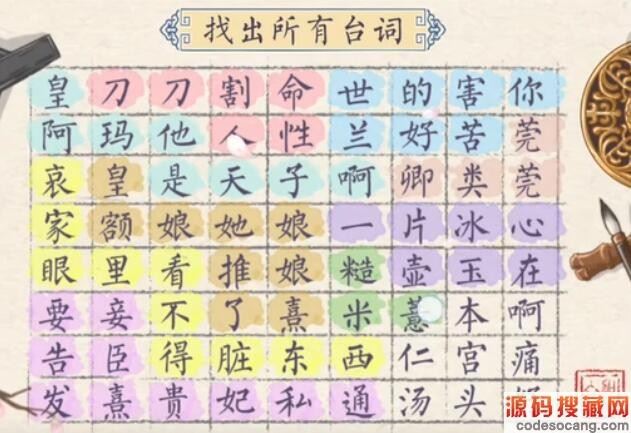 找出所有台词
皇刀刀割命世的害你
阿玛他人性兰好苦莞
哀皇是天子啊卿类莞
家额娘她娘一片冰心
眼里看推娘糙壶玉在
要妾不了熹米薏本啊
告臣得脏东西仁宫痛
发熹贵妃私通汤头
源码搜藏网
codesocang.com